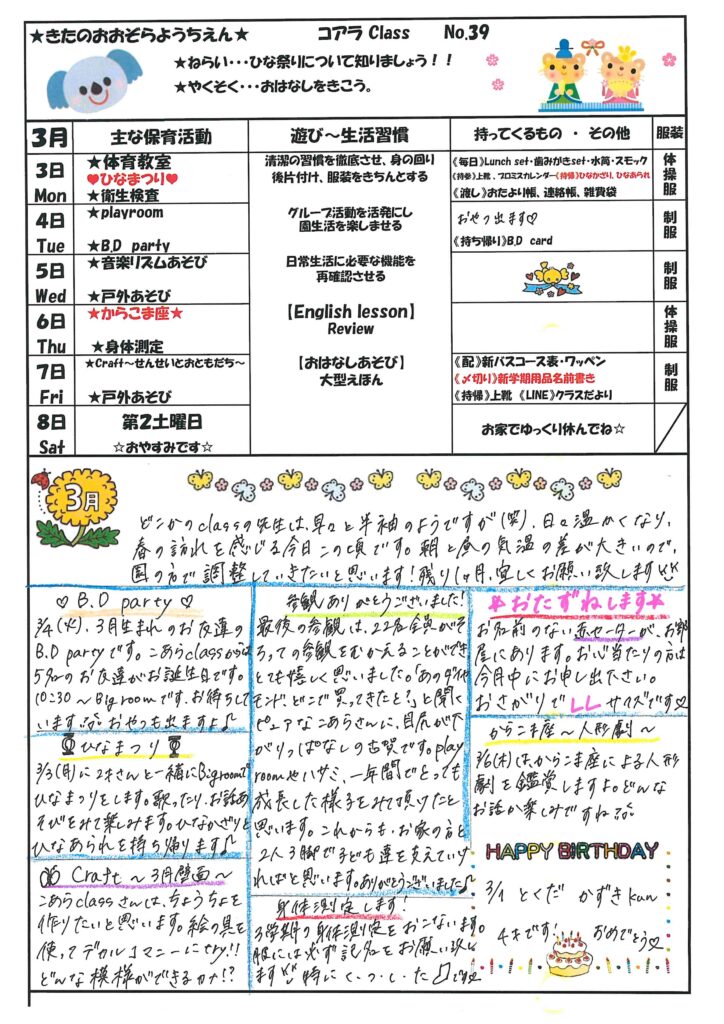 ★きたのおおぞらようちえん★ コアラ Class No.39
★ねらい・・・ひな祭りについて知りましょう！！
★やくそく・・・おはなしをきこう。
3月 主な保育活動 遊び～生活習慣 持ってくるもの ・ その他 服装
3日 Mon
★体育教室
♥ひなまつり♥
★衛生検査
清潔の習慣を徹底させ、身の回り
後片付け、服装をきちんとする
《毎日》Lunch set・歯みがきset・水筒・スモック
《持参》上靴、プロミスカレンダー《持帰》ひなかざり、ひなあられ
《渡し》おたより帳、連絡帳、雑費袋
体操服
4日 Tue
★playroom
★B.D party
グループ活動を活発にし
園生活を楽しませる
おやつ出ます♡
《持ち帰り》B.D card
制服
5日 Wed
★音楽リズムあそび
★戸外あそび
日常生活に必要な機能を
再確認させる
制服
6日 Thu
★からこま座★
★身体測定
【English lesson】
Review
体操服
7日 Fri
★Craft～せんせいとおともだち～
★戸外あそび
【おはなしあそび】
大型えほん
《配》新バスコース表・ワッペン
《〆切り》新学期用品名前書き
《持帰》上靴 《LINE》クラスだより
制服
8日 Sat
第2土曜日
☆おやすみです☆
お家でゆっくり休んでね☆
3月
どこかのclassの先生は、早々と半袖のようですが(笑)、日々温かくなり、
春の訪れを感じる今日この頃です。朝と昼の気温の差が大きいので、
園の方で調整していきたいと思います！残り1ヶ月、宜しくお願い致します
♡ B.D party ♡
3/4(火)、3月生まれのお友達の
B.D partyです。こあらclassからは
5名のお友達がお誕生日です。
10:30～Big roomです。お待ちして
います おやつも出ますよ♪
ひなまつり
3/3(月)に2才さんと一緒にBigroomで
ひなまつりをします。歌ったり、お話あ
そびをみて楽しみます。ひなかざりと
ひなあられを持ち帰ります♪
Craft～3月壁面～
こあらclassさんは、ちょうちょを
作りたいと思います。絵の具を
使ってデカルコマニーにtry!!
どんな模様ができるカナ!?
参観ありがとうございました！
最後の参観は、22名全員がそ
ろっての参観をむかえることができ
とても嬉しく思いました。「あのダイヤ
モンド、どこで買ってきたと？」と聞く
ピュアなこあらさんに、目尻が下
がりっぱなしの古賀です。play
roomやハサミ、一年間でとっても
成長した様子をみて頂けたと
思います。これからも、お家の方と
2人3脚で子ども達を支えていけ
ればと思います。ありがとうございました♪
身体測定します！
3学期の身体測定をおこないます。
服には必ず記名をお願い致し
ます 特にく・つ・し・たです
★おたずねします★
お名前のない赤セーターが、お部
屋にあります。お心当たりの方は
今月中にお申し出下さい。
おさがりでLLサイズです♡
からこま座～人形劇～
3/6(木)は、からこま座による人形
劇を鑑賞しますよ。どんな
お話か楽しみですね
HAPPY BIRTHDAY
3/1 とくだ かずきkun
4才です！ おめでとう♡